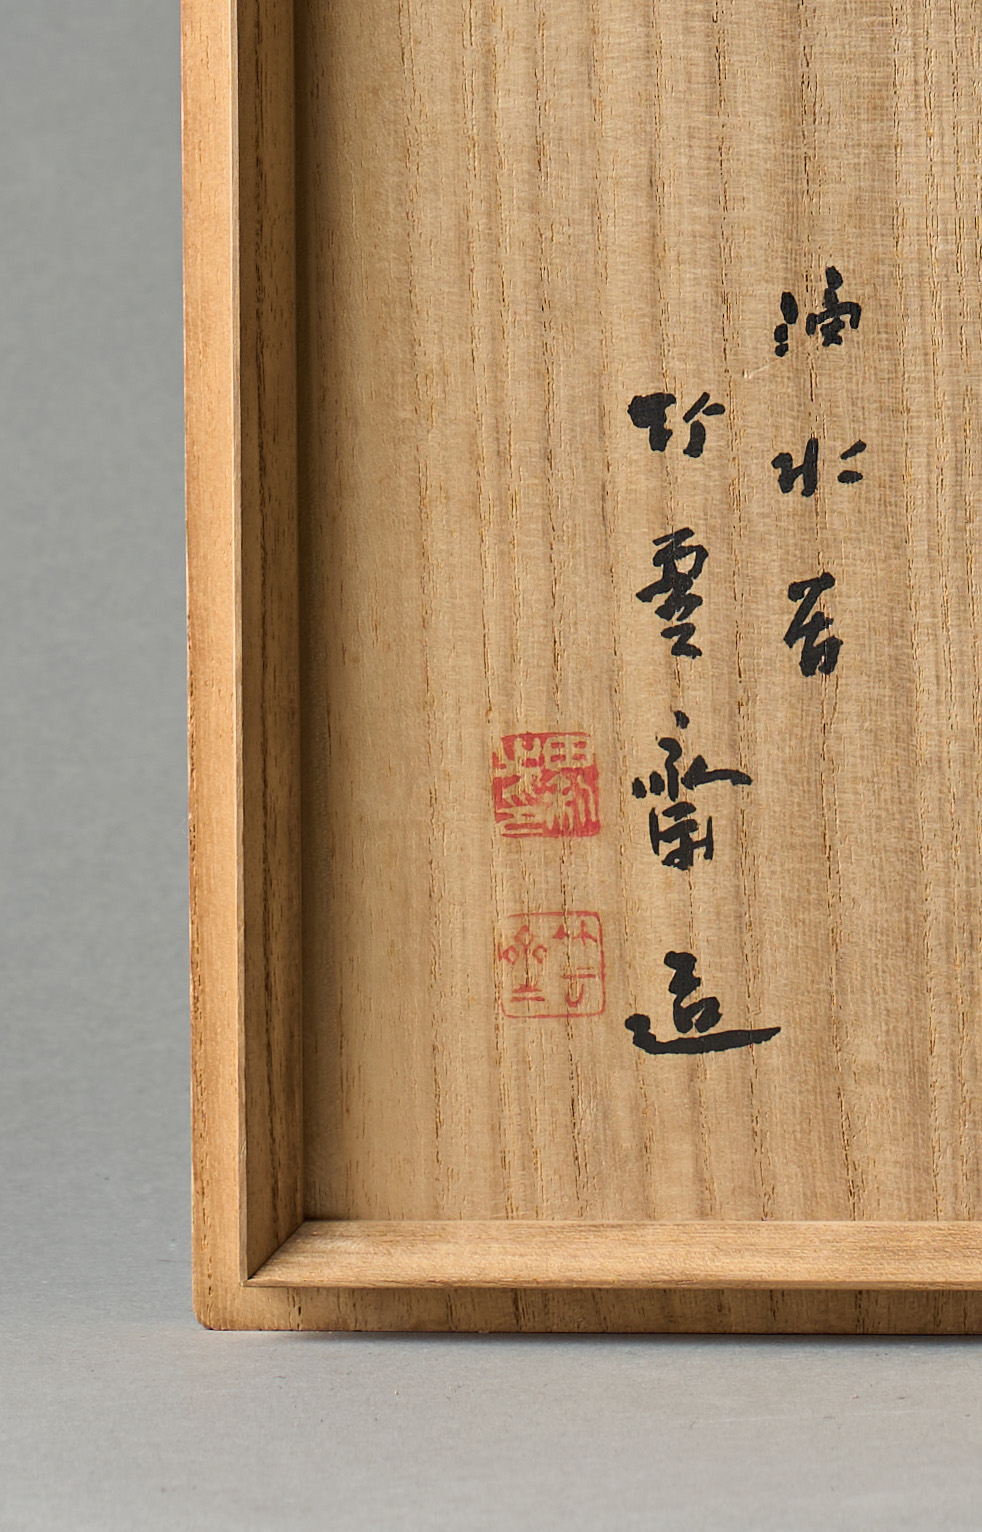 滴水居
竹雲齋造